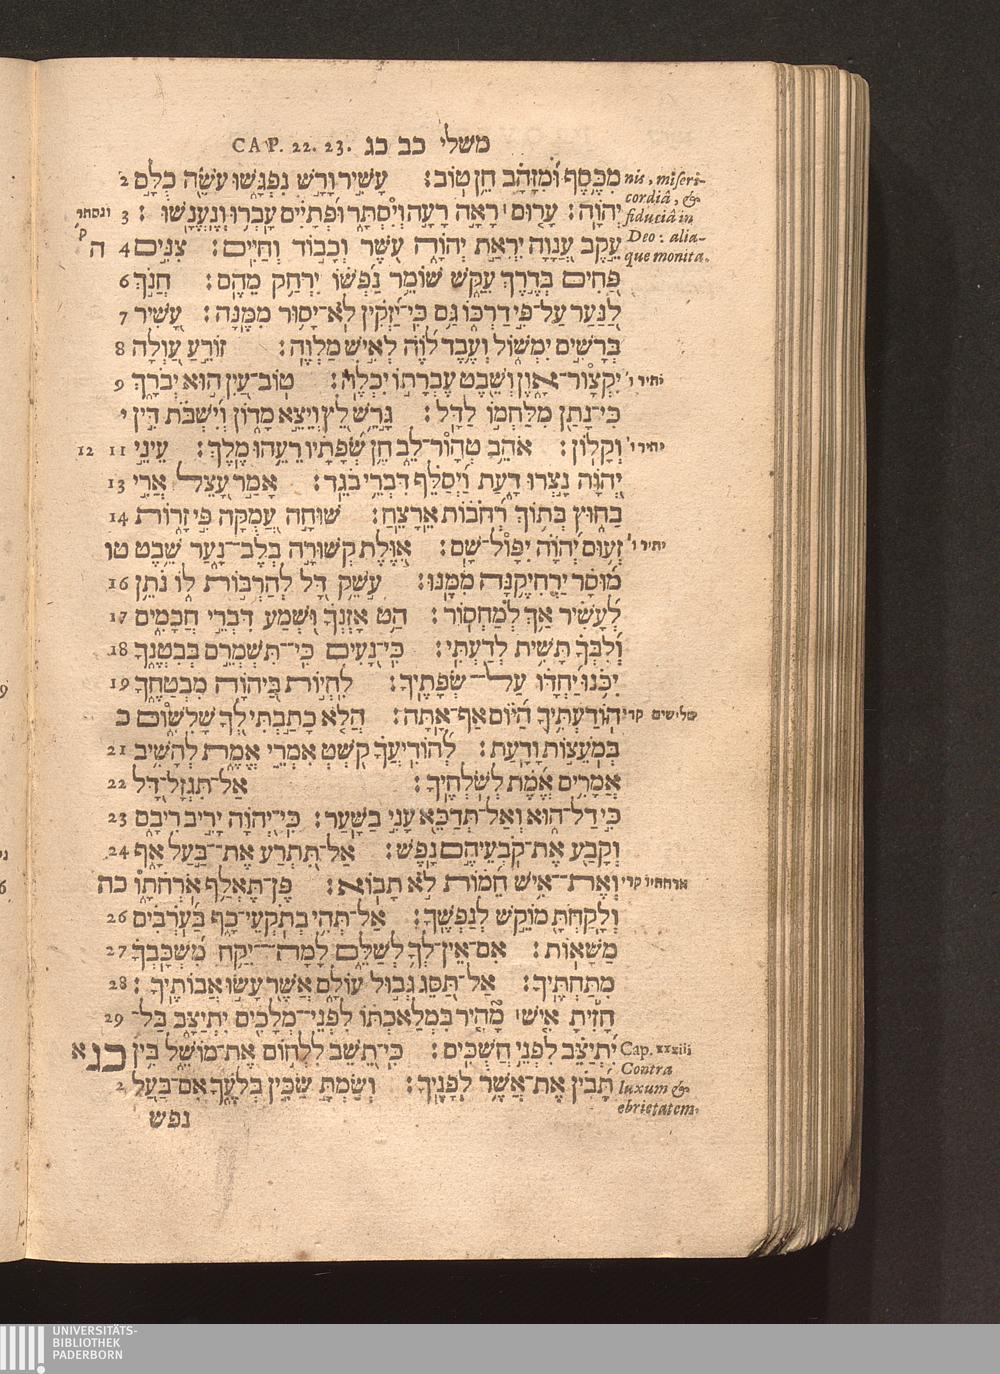 CAP. 22. 23. משלי כב כג
מִכֶּסֶף וּמִזָּהָב חֵן טוֹב׃ עָשִׁיר וָרָשׁ נִפְגָּשׁוּ עֹשֵׂה כֻלָּם 2
nis, miseri-
יְהוָה׃ עָרוּם ׀ רָאָה רָעָה וְיִסְתָּר וּפְתָיִים עָבְרוּ וְנֶעֱנָשׁוּ׃ 3 ונסתר
cordiâ, &
fiduciâ in
ק׳
עֵקֶב עֲנָוָה יִרְאַת יְהוָה עֹשֶׁר וְכָבוֹד וְחַיִּים׃ צִנִּים 4 ה
Deo: alia-
que monita.
פַּחִים בְּדֶרֶךְ עִקֵּשׁ שׁוֹמֵר נַפְשׁוֹ יִרְחַק מֵהֶם׃ חֲנֹךְ 6
לַנַּעַר עַל־פִּי דַרְכּוֹ גַּם כִּי־יַזְקִין לֹא־יָסוּר מִמֶּנָּה׃ עָשִׁיר 7
בְּרָשִׁים יִמְשׁוֹל וְעֶבֶד לֹוֶה לְאִישׁ מַלְוֶה׃ זוֹרֵעַ עַוְלָה 8
יתיר ו׳ יִקְצוֹר־אָוֶן וְשֵׁבֶט עֶבְרָתוֹ יִכְלֶה׃ טוֹב־עַיִן הוּא יְבֹרָךְ 9
כִּי־נָתַן מִלַּחְמוֹ לַדָּל׃ גָּרֵשׁ לֵץ וְיֵצֵא מָדוֹן וְיִשְׁבֹּת דִּין י
יתיר ו׳ וְקָלוֹן׃ אֹהֵב טְהוֹר־לֵב חֵן שְׂפָתָיו רֵעֵהוּ מֶלֶךְ׃ עֵינֵי 11 12
יְהוָה נָצְרוּ דָעַת וַיְסַלֵּף דִּבְרֵי בֹגֵד׃ אָמַר עָצֵל אֲרִי 13
בַחוּץ בְּתוֹךְ רְחֹבוֹת אֵרָצֵחַ׃ שׁוּחָה עֲמֻקָּה פִּי זָרוֹת 14
יתיר ו׳ זְעוּם יְהוָה יִפּוֹל־שָׁם׃ אִוֶּלֶת קְשׁוּרָה בְלֶב־נָעַר שֵׁבֶט טו
מוּסָר יַרְחִיקֶנָּה מִמֶּנּוּ׃ עֹשֵׁק דָּל לְהַרְבּוֹת לוֹ נֹתֵן 16
לְעָשִׁיר אַךְ לְמַחְסוֹר׃ הַט אָזְנְךָ וּשְׁמַע דִּבְרֵי חֲכָמִים 17
וְלִבְּךָ תָּשִׁית לְדַעְתִּי׃ כִּי־נָעִים כִּי־תִשְׁמְרֵם בְּבִטְנֶךָ 18
יִכֹּנוּ יַחְדָּו עַל־שְׂפָתֶיךָ׃ לִהְיוֹת בַּיהוָה מִבְטַחֶךָ 19
שלישים קרי הוֹדַעְתִּיךָ הַיּוֹם אַף־אָתָּה׃ הֲלֹא כָתַבְתִּי לְךָ שָׁלִשׁוֹם כ
בְּמֹעֵצוֹת וָדָעַת׃ לְהוֹדִיעֲךָ קֹשְׁטְ אִמְרֵי אֱמֶת לְהָשִׁיב 21
אֲמָרִים אֱמֶת לְשֹׁלְחֶיךָ׃ אַל־תִּגְזָל־דָּל 22
כִּי דַל־הוּא וְאַל־תְּדַכֵּא עָנִי בַשָּׁעַר׃ כִּי־יְהוָה יָרִיב רִיבָם 23
וְקָבַע אֶת־קֹבְעֵיהֶם נָפֶשׁ׃ אַל־תִּתְרַע אֶת־בַּעַל אָף 24
ארחתיו קרי וְאֶת־אִישׁ חֵמוֹת לֹא תָבוֹא׃ פֶּן־תֶּאֱלַף אֹרְחֹתָו כה
וְלָקַחְתָּ מוֹקֵשׁ לְנַפְשֶׁךָ׃ אַל־תְּהִי בְתֹקְעֵי־כָף בַּעֹרְבִים 26
מַשָּׁאוֹת׃ אִם־אֵין־לְךָ לְשַׁלֵּם לָמָּה־יִקַּח מִשְׁכָּבְךָ 27
מִתַּחְתֶּיךָ׃ אַל־תַּסֵּג גְּבוּל עוֹלָם אֲשֶׁר עָשׂוּ אֲבוֹתֶיךָ׃ 28
חָזִיתָ אִישׁ ׀ מָהִיר בִּמְלַאכְתּוֹ לִפְנֵי־מְלָכִים יִתְיַצָּב בַּל־ 29
יִתְיַצֵּב לִפְנֵי חֲשֻׁכִּים׃ כִּי־תֵשֵׁב לִלְחוֹם אֶת־מוֹשֵׁל בִּין כג א
Cap. xxiii
Contra
תָבִין אֶת־אֲשֶׁר לְפָנֶיךָ׃ וְשַׂמְתָּ שַׂכִּין בְּלֹעֶךָ אִם־בַּעַל 2
luxum &
ebrietatem.
נפש
UNIVERSITÄTS-
BIBLIOTHEK
PADERBORN